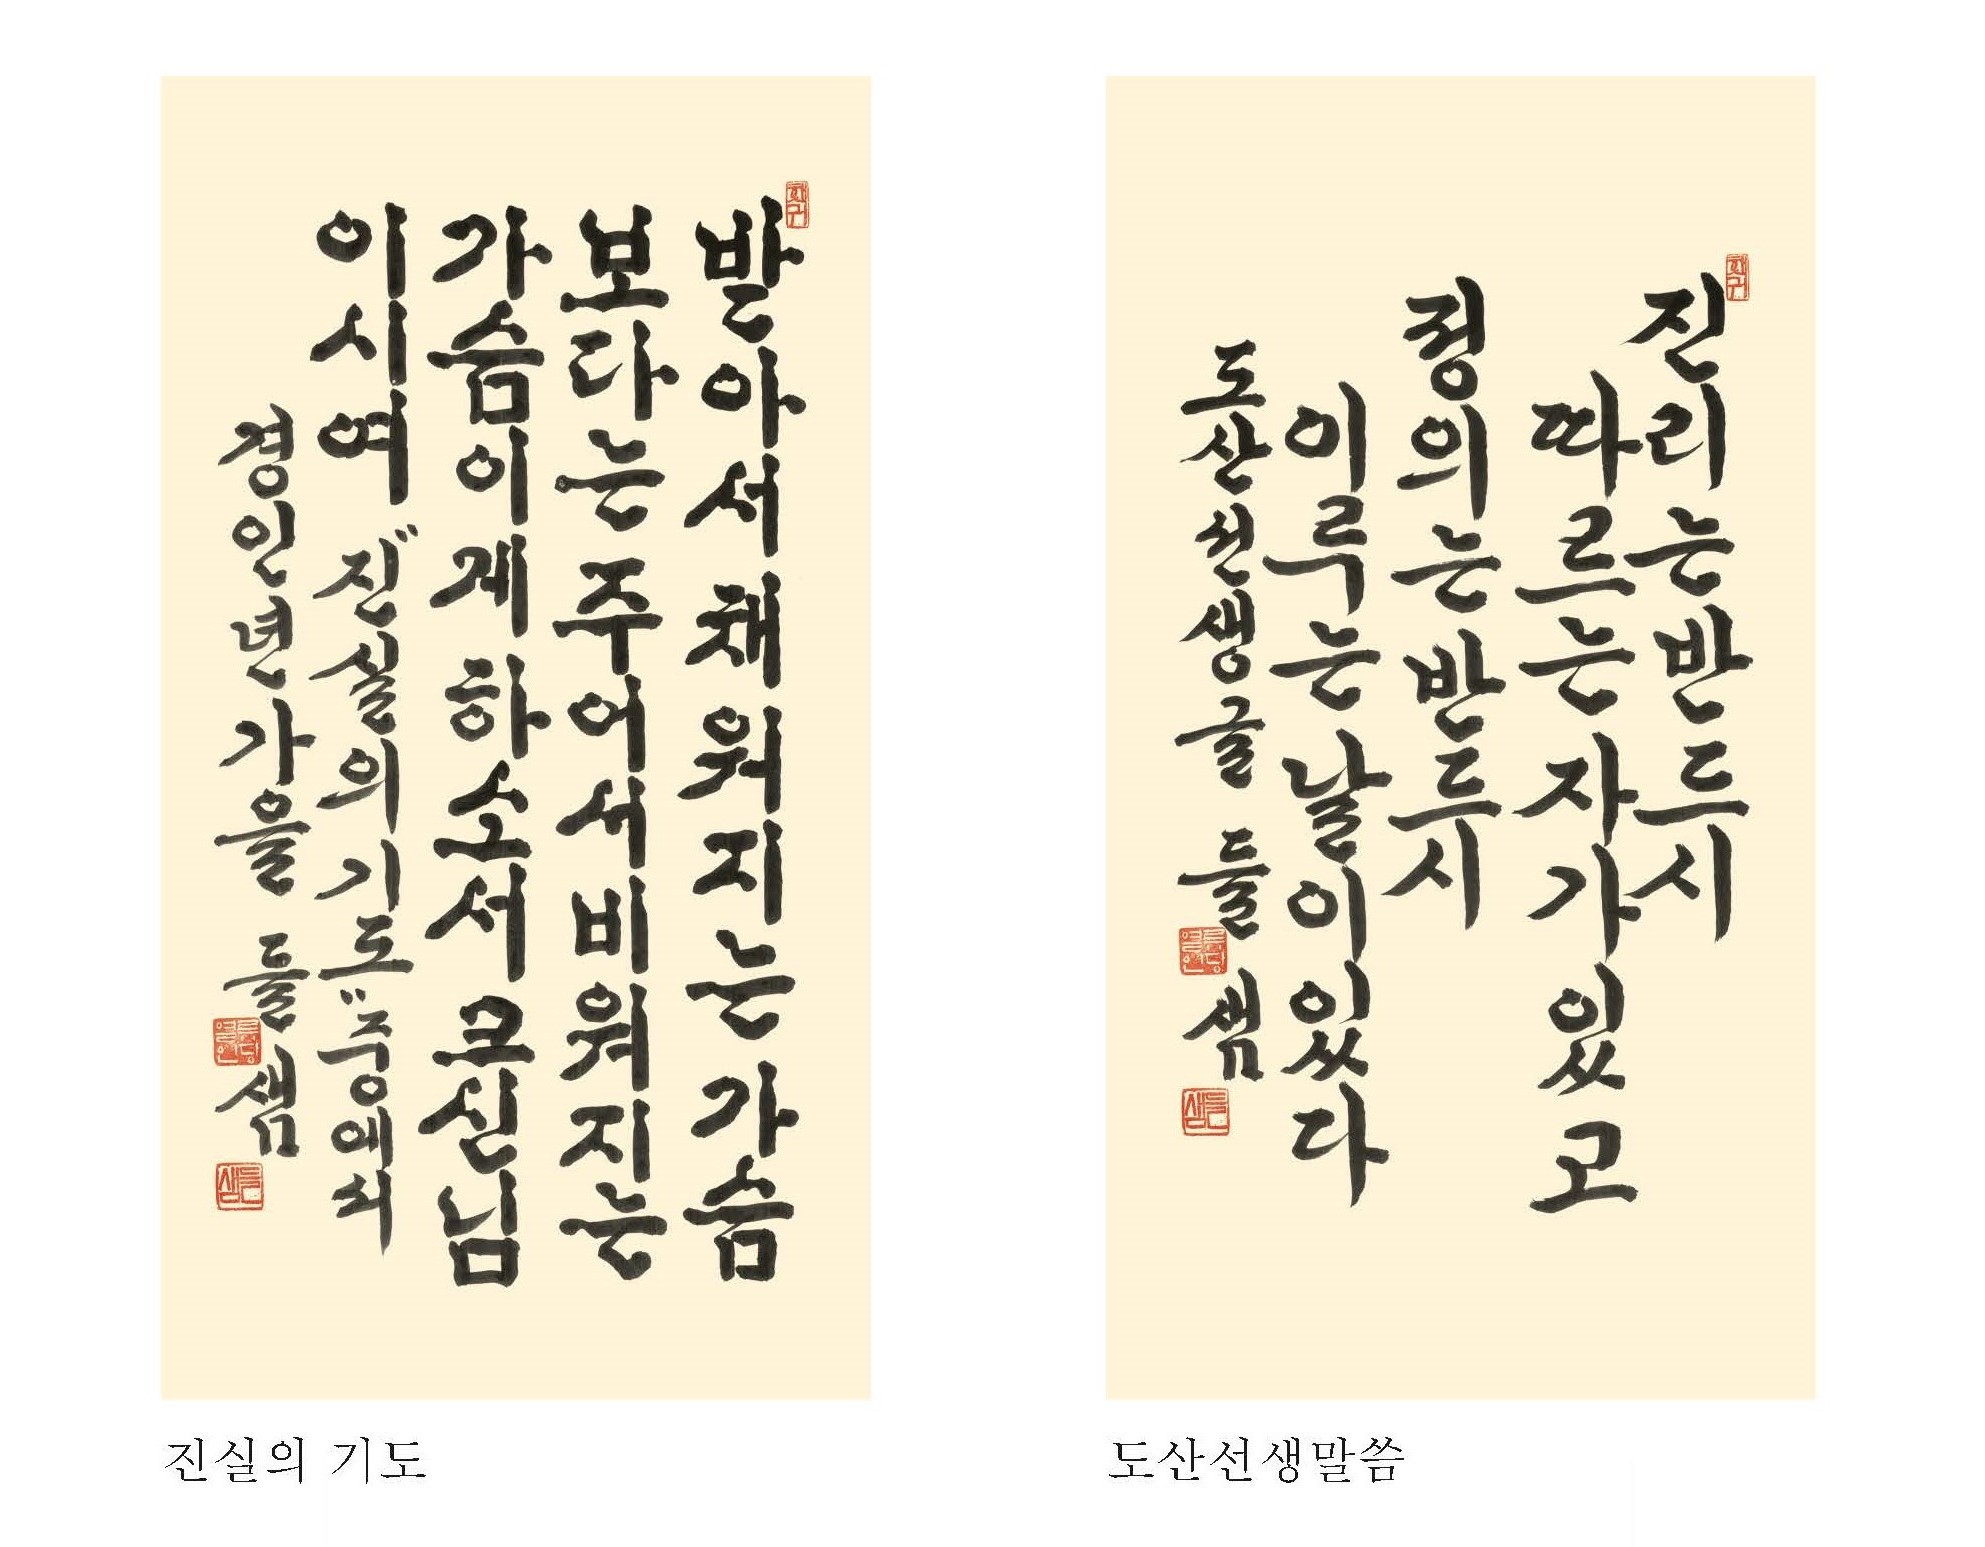 받아서채워지는가슴
보다는주어서비워지는
가슴이게하소서크신님
이시여 "진실의기도"중에서
경인년가을 들샘
진실의 기도
진리는반드시
따르는자가있고
정의는반드시
이루는날이있다
도산선생글 들샘
도산선생말씀